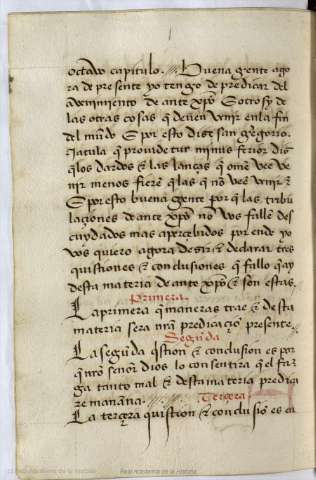 octavo capitulo. Buena gente ago
ra de presente yo tengo de predicar del
advenimiento de ante xp̃o & otrosy de
las otras cosas que deven venir en la fin
del mũdo & por esto dize san gregorio.
Jacula que providetur minus ferior dis
q̃ los dardos & las lanças q̃ ome vee ve
nir menos fierẽ q̃ las q̃ no vee venir &
& por esto buena gente por q̃ las tribu
laciones de ante xp̃o no vos fallẽ des
cuydados mas apercebidos por ende yo
vos quiero agora dezir & declarar tres
quistiones & conclusiones que fallo q̃ ay
desta materia de ante xp̃o & son estas.
Primera.
La primera q̃ maneras trae & desta
materia sera nr̃a predicaçiõ presente.
Segũda
La segũda q̃stion & conclusiõ es por
que nr̃o señor dios lo consentira q̃ el fa
ga tanto mal & desta materia predica
re mañana.
Terçera
La terçera quistion & conclusiõ es en
Real Academia de la Historia